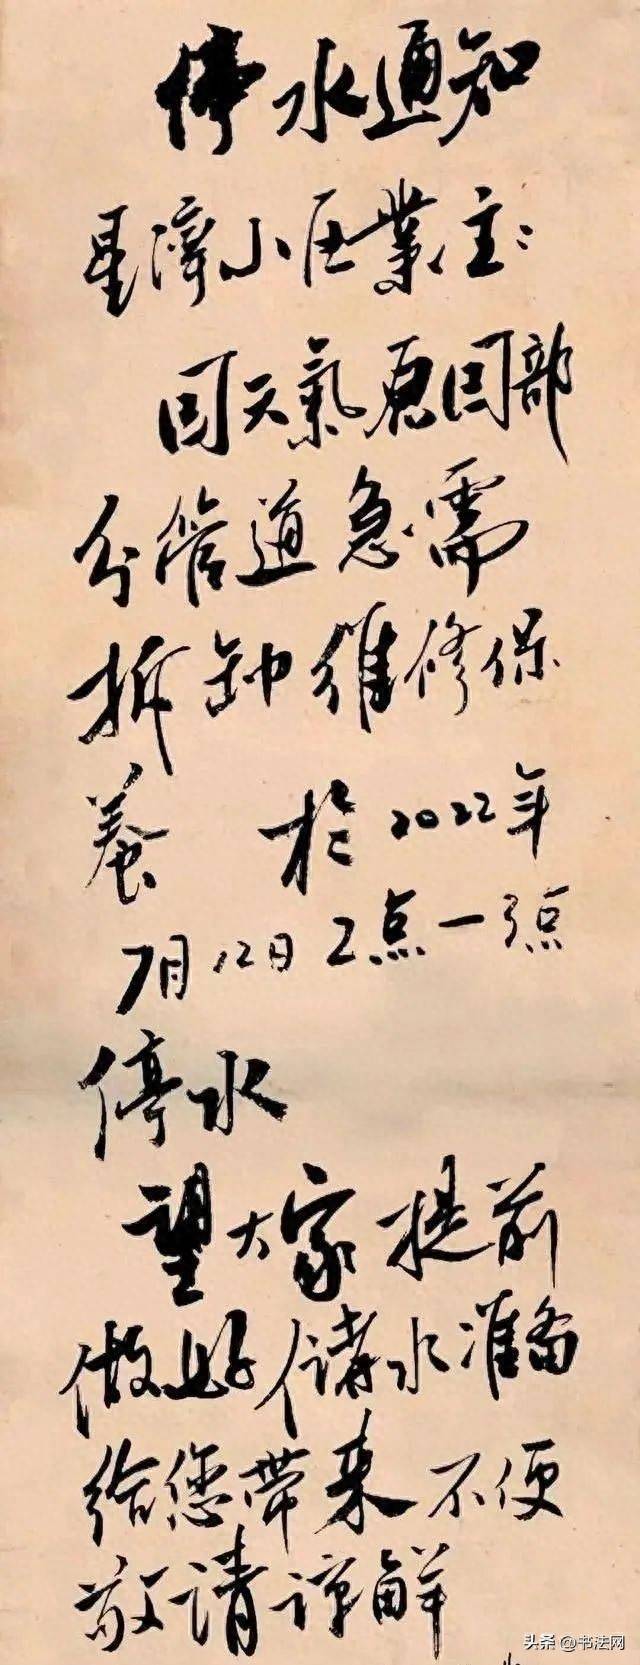 停水通知
星濟小区業主:
因天氣原因部
分管道急需
拆卸维修保
養 於2022年
7月12日2点一5点
停水
望大家提前
做好储水准备
给您带来不便
敬请谅解
头条@书法网